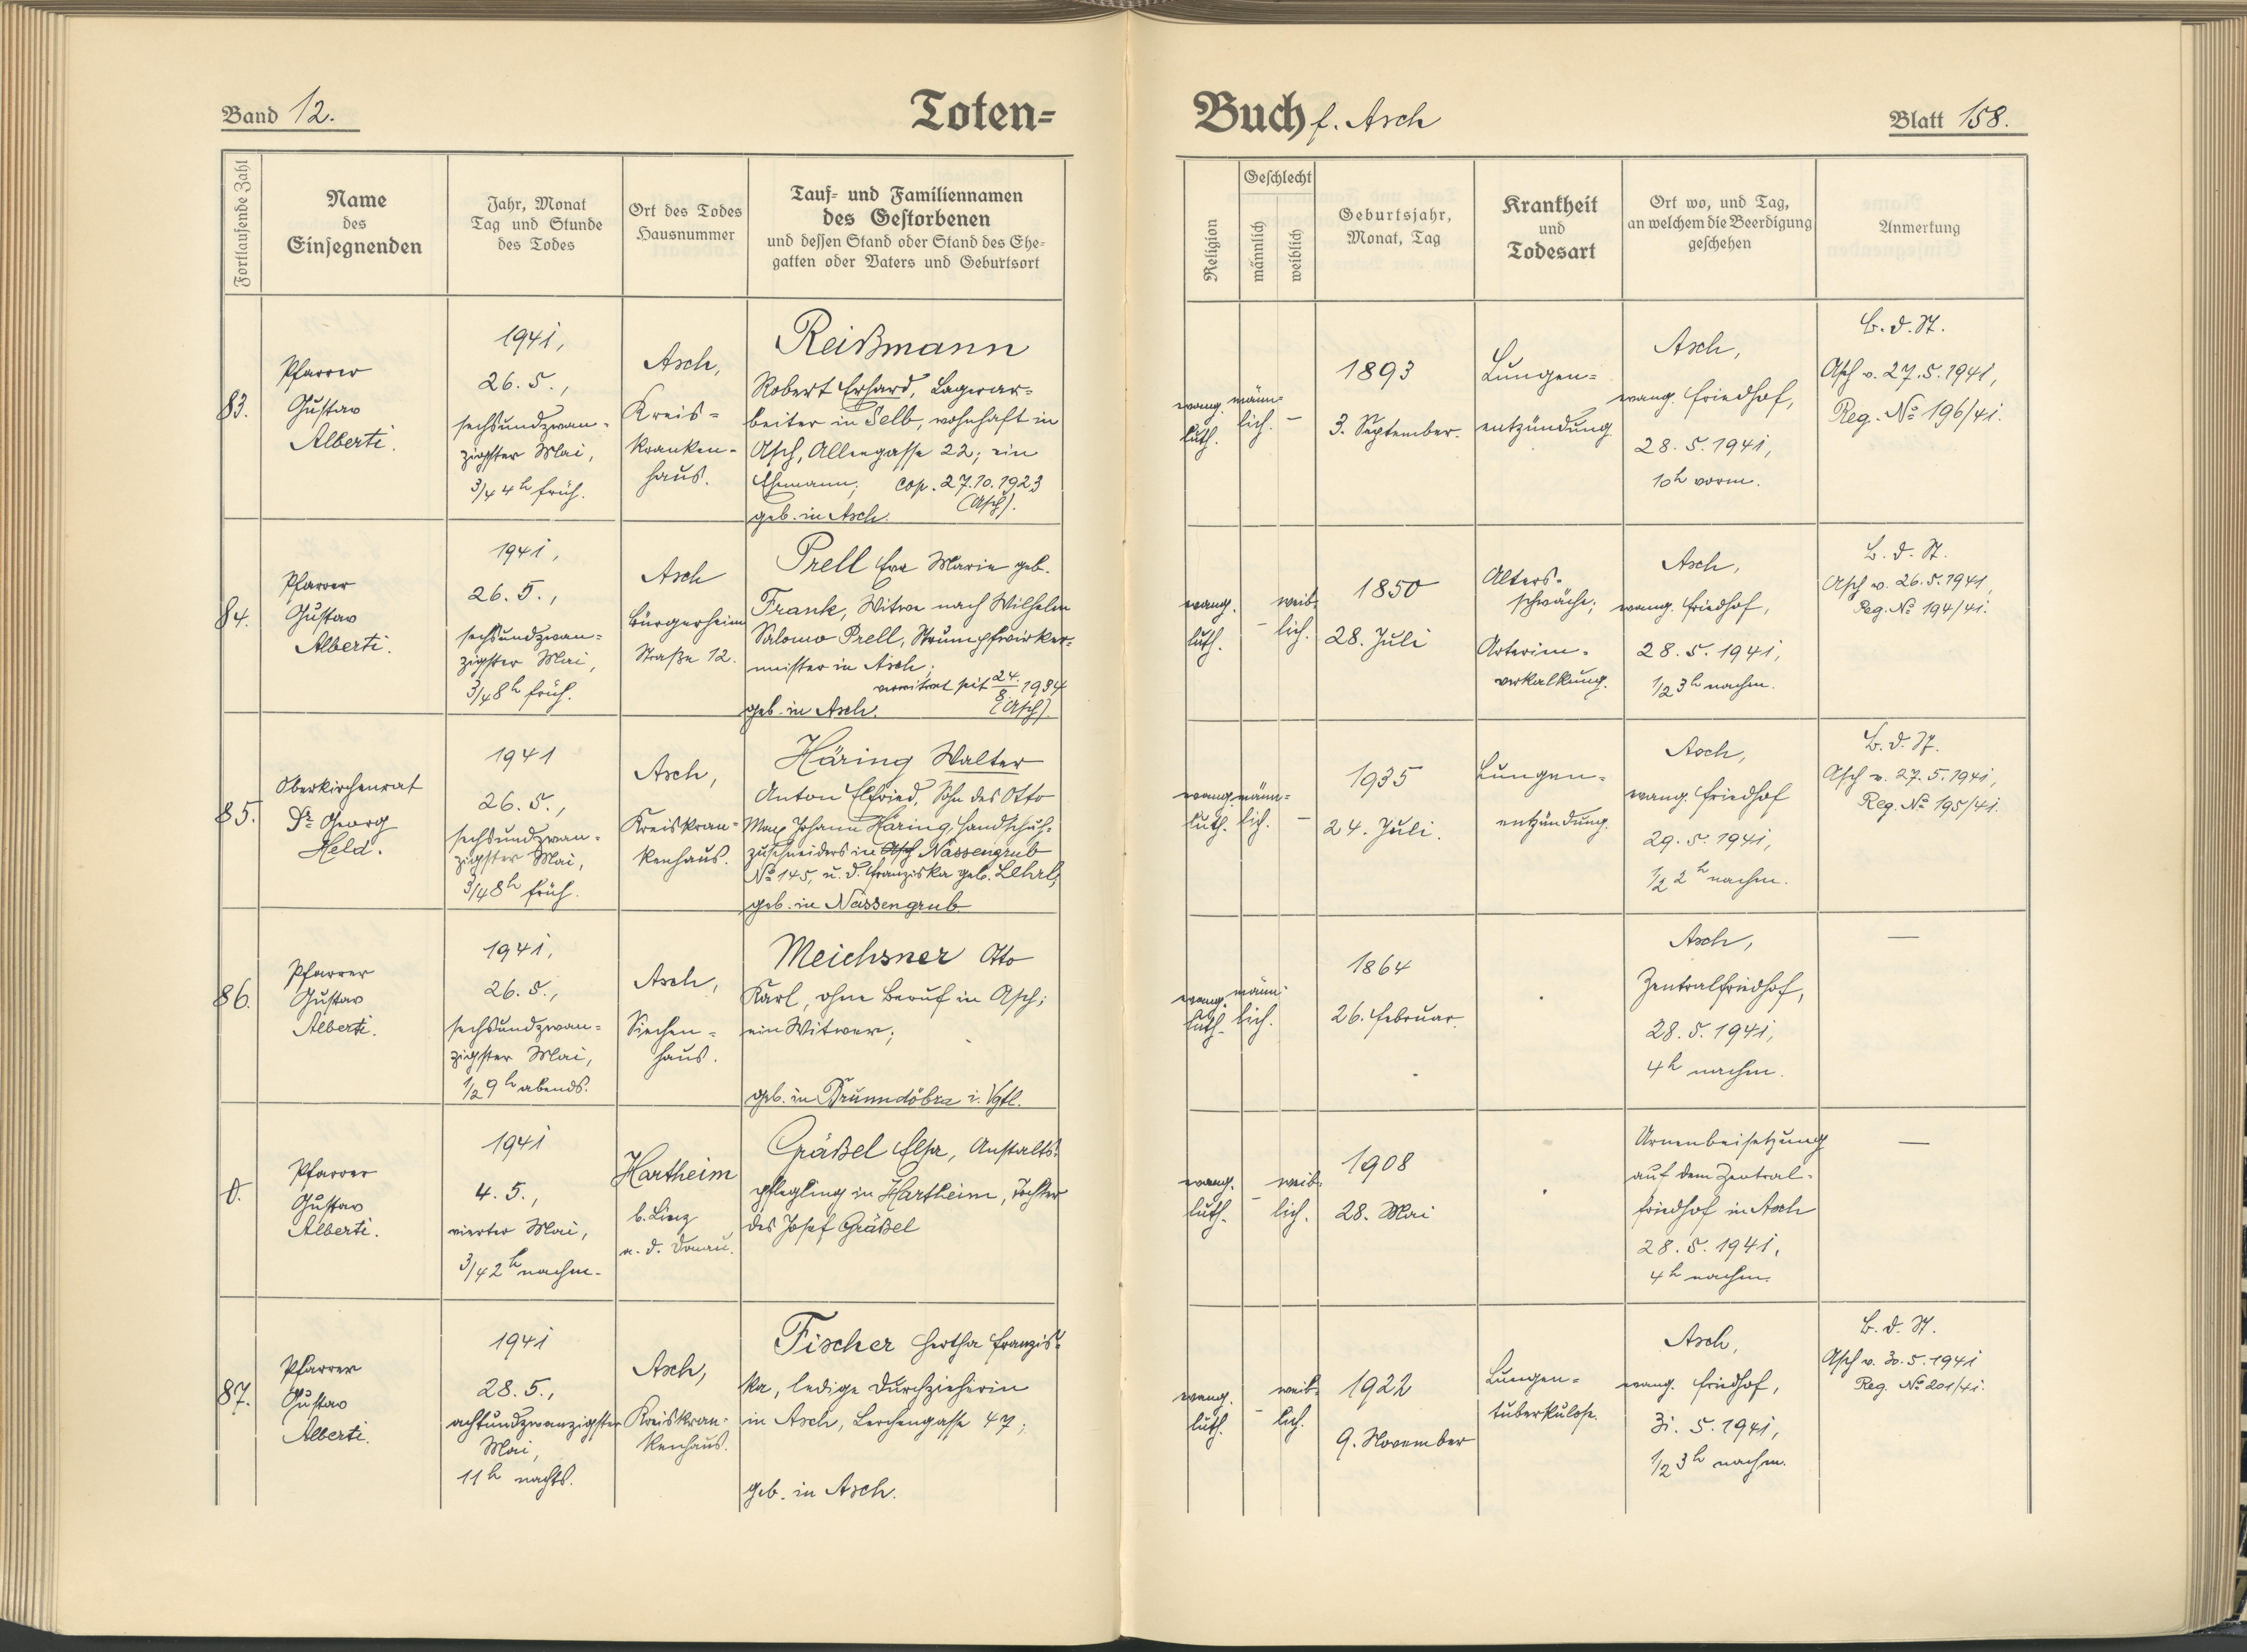 Band 12.
Toten=
Buch f. Asch
Blatt 158.
Fortlaufende Zahl
Name
des
Einsegnenden
Jahr, Monat
Tag und Stunde
des Todes
Ort des Todes
Hausnummer
Tauf= und Familiennamen
des Gestorbenen
und dessen Stand oder Stand des Ehe=
gatten oder Vaters und Geburtsort
Religion
Geschlecht
männlich
weiblich
Geburtsjahr,
Monat, Tag
Krankheit
und
Todesart
Ort wo, und Tag,
an welchem die Beerdigung
geschehen
Anmerkung
83.
Pfarrer
Gustav
Alberti.
1941,
26. 5.,
sechsundzwan-
zigster Mai,
3/4 4h früh.
Asch,
Kreis=
kranken-
haus.
Reißmann
Robert Erhard, Lagerar=
beiter in Selb, wohnhaft in
Asch, Alleegasse 22; ein
Ehemann; cop. 27.10.1923
(Asch).
geb. in Asch.
evang.
luth.
männ=
lich.
–
1893
3. September.
Lungen=
entzündung.
Asch,
evang. Friedhof,
28. 5. 1941,
10h vorm.
B. d. St.
Asch v. 27. 5. 1941,
Reg. No 196/41.
84.
Pfarrer
Gustav
Alberti.
1941,
26. 5.,
sechsundzwan=
zigster Mai,
3/4 8h früh.
Asch
Bürgerheim
Straße 12.
Prell Eva Marie geb.
Frank, Witwe nach Wilhelm
Salomo Prell, Strumpfwirker=
meister in Asch;
verwitwet seit 24./8. 1934
(Asch).
geb. in Asch.
evang.
luth.
–
weib=
lich.
1850
28. Juli
Alters-
schwäche;
Arterien-
verkalkung.
Asch,
evang. Friedhof,
28. 5. 1941,
1/2 3h nachm.
B. d. St.
Asch v. 26. 5. 1941,
Reg. No 194/41.
85.
Oberkirchenrat
Dr Georg
Held.
1941
26. 5.,
sechsundzwan-
zigster Mai,
3/4 8h früh.
Asch,
Kreiskran-
kenhaus.
Häring Walter
Anton Elfried, Sohn des Otto
Max Johann Häring, Handschuh=
zuschneiders in Asch Nassengrub
No 145, u. d. Franziska geb. Lehrl;
geb. in Nassengrub
evang.
luth.
männ=
lich.
–
1935
24. Juli.
Lungen-
entzündung.
Asch,
evang. Friedhof
29. 5. 1941,
1/2 2h nachm.
B. d. St.
Asch v. 27. 5. 1941,
Reg. No 195/41.
86.
Pfarrer
Gustav
Alberti.
1941,
26. 5.,
sechsundzwan=
zigster Mai,
1/2 9h abends.
Asch,
Siechen=
haus.
Meichsner Otto
Karl, ohne Beruf in Asch;
ein Witwer;
geb. in Brunndöbra i. Vgtl.
evang.
luth.
männ-
lich.
1864
26. Februar.
Asch,
Zentralfriedhof,
28. 5. 1941,
4h nachm.
—
0.
Pfarrer
Gustav
Alberti.
1941
4. 5.,
vierter Mai,
3/4 2h nachm.
Hartheim
b. Linz
a. d. Donau.
Gräßel Elsa, Anstalts=
pflegling in Hartheim, Tochter
des Josef Gräßel
evang.
luth.
–
weib=
lich.
1908
28. Mai
Urnenbeisetzung
auf dem Zentral-
friedhof in Asch
28. 5. 1941,
4h nachm.
—
87.
Pfarrer
Gustav
Alberti.
1941
28. 5.,
achtundzwanzigster
Mai,
11h nachts.
Asch,
Kreiskran-
kenhaus.
Fischer Hertha Franzis=
ka, ledige Durchzieherin
in Asch, Lerchengasse 47;
geb. in Asch.
evang.
luth.
–
weib=
lich.
1922
9. November
Lungen=
tuberkulose.
Asch,
evang. Friedhof,
31. 5. 1941,
1/2 3h nachm.
B. d. St.
Asch v. 30. 5. 1941
Reg. No 201/41.